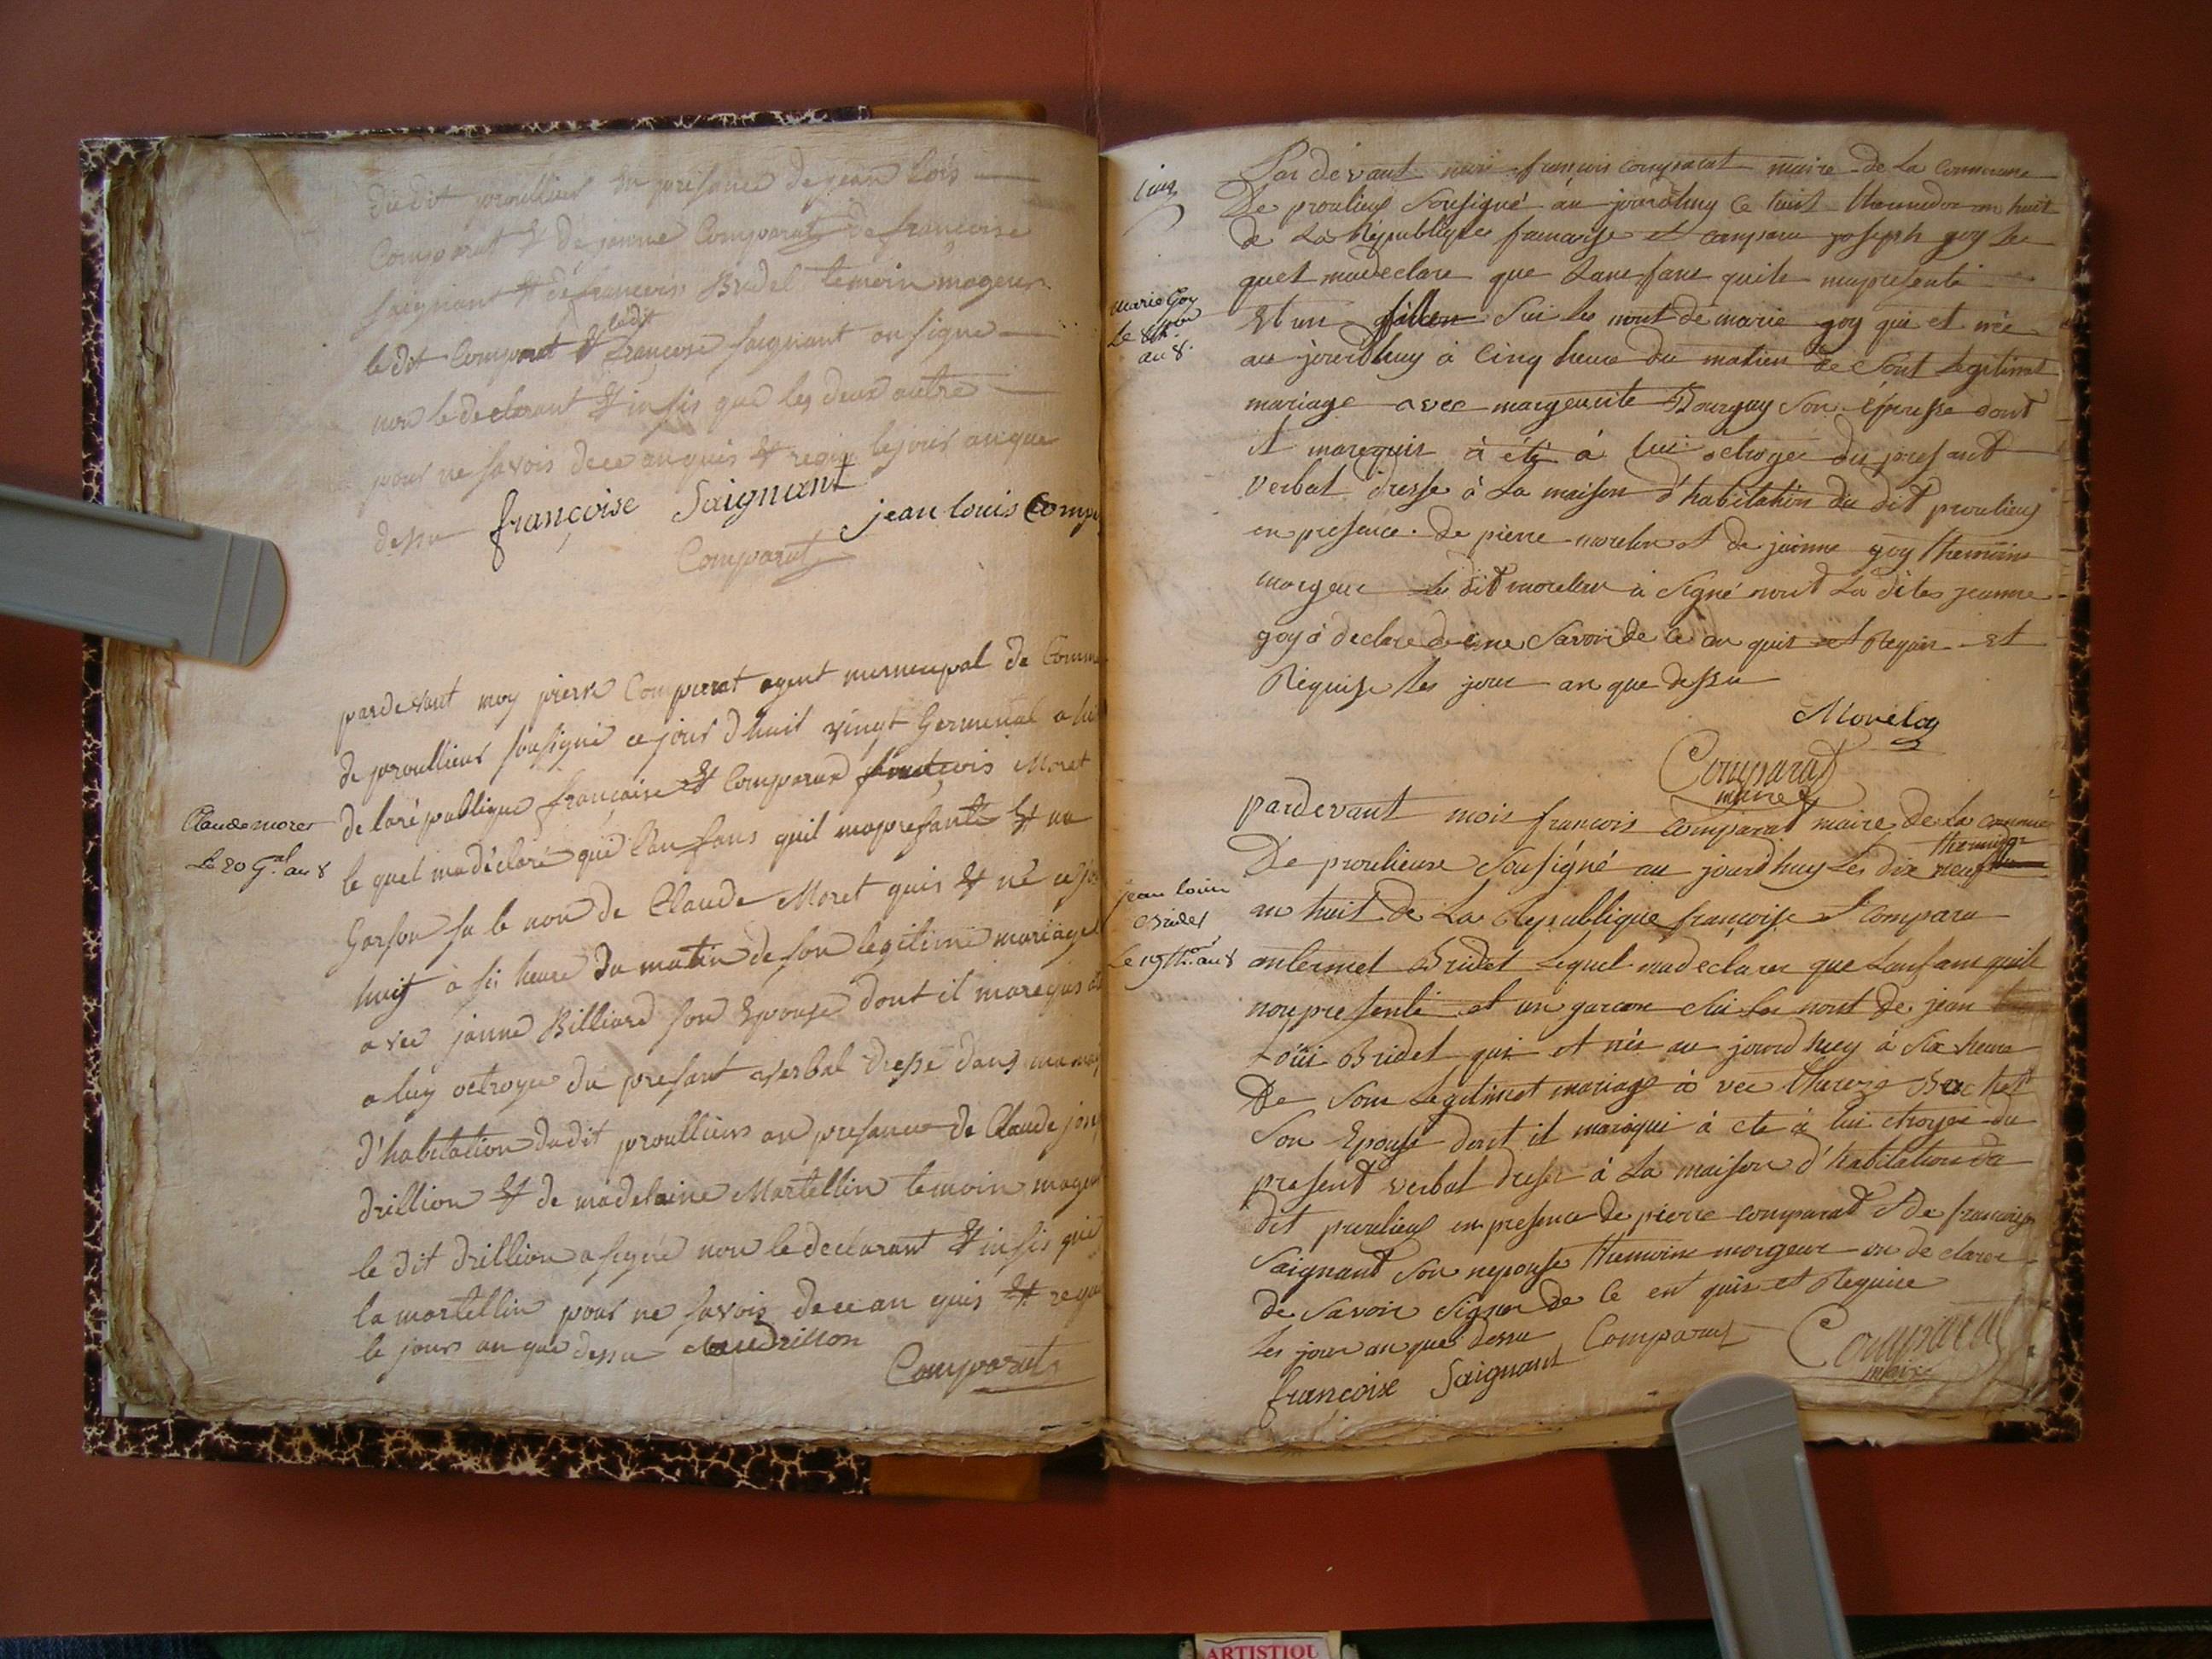 dudit proullieus en presance de jean lois
Comparat & de janne Comparat de françoise
saignant & de francois Bridel temoin mageur
ledit Comparat & ladit françoise saignant on signe
non le declarant & insis que les deux autre
pour ne savois de ce anquis & requi le jour an que
dessu françoise Saignant jean louis Comp
Comparat
pardevant moy pierre Comparat agent municipal de Comm
de proullieus sousigné ce jour d'huit vingt Germinal a hui
de la républiqu française & Comparu francois Moret
Claude moret
le 20 Gal. an 8
le quel madéclaré que l'an fans quil mapresante & un
Garson su le non de Claude Moret quis & né ce jo
huit à sis heure du matin de son legitime mariage
avec janne Billiard son Epouse dont il marequs
a luy octroyé du presant verbal dressé dans ma mai
d'habitation dudit proullieus an presance de Claude jon
drillion & de madelaine Martellin temoin mageu
le dit drillion a signé non le declarant & insis que
la martellin pour ne savois de ce an quis & requ
le jours an que dessu claudrillon
Comparat
cinq
Par devant moi francois comparat maire de La Commune
De proulieus Sousigné au jourdhuy Ce huit thermidor an huit
de La République francaise et comparu joseph goy le
quel madeclare que Lans fans quile mapresenté
marie Goy
Le 8 ther
an 8.
Et un fillen Sui les nont de marie goy qui et née
au jourdhuy à Cinq heure du matien de Sont Legitimet
mariage avec margeurite Bourgay Son Epousse dont
it marequir à été à lui octroge du presant
verbat dresse à La maison d'habitation du dit proulieus
en presence de pierre morelon et de jeanne goy themoins
mageur Les dit morelon à Signé nont La dites jeanne
goy à declare de ne Savoir de ce an quis et Requis et
Requise les jour an que dessu
Morelon
Comparat
maire
pardevant mois francois comparat maire de La commune
De proulieuse Sousigné au jourdhuy Les dix neuf thermidor
jean louis
Bridel
Le 19 ther. an 8
an huit de La Republique françoise et comparu
antermet Bridet Lequel madeclarer que Lansfans quile
nou presenté et un garcon Sui les nont de jean
Loüi Bridet qui et nés au jourdhuy à Six heure
De Son Legetimet mariage à vec thereze Bachet
Son Epouse dont il marequi à ete à lui ctroyé du
present verbat dresér à La maison d'habitation du
dit proulieus en presence de pierre comparat et de francoise
Saignant Son nepouse themoins morgeur on de clarer
de Savoir Signer de Ce en quis et Requise
Les jour an que dessu Comparat Comparat
françoise Saignant maire
ARTISTIQU